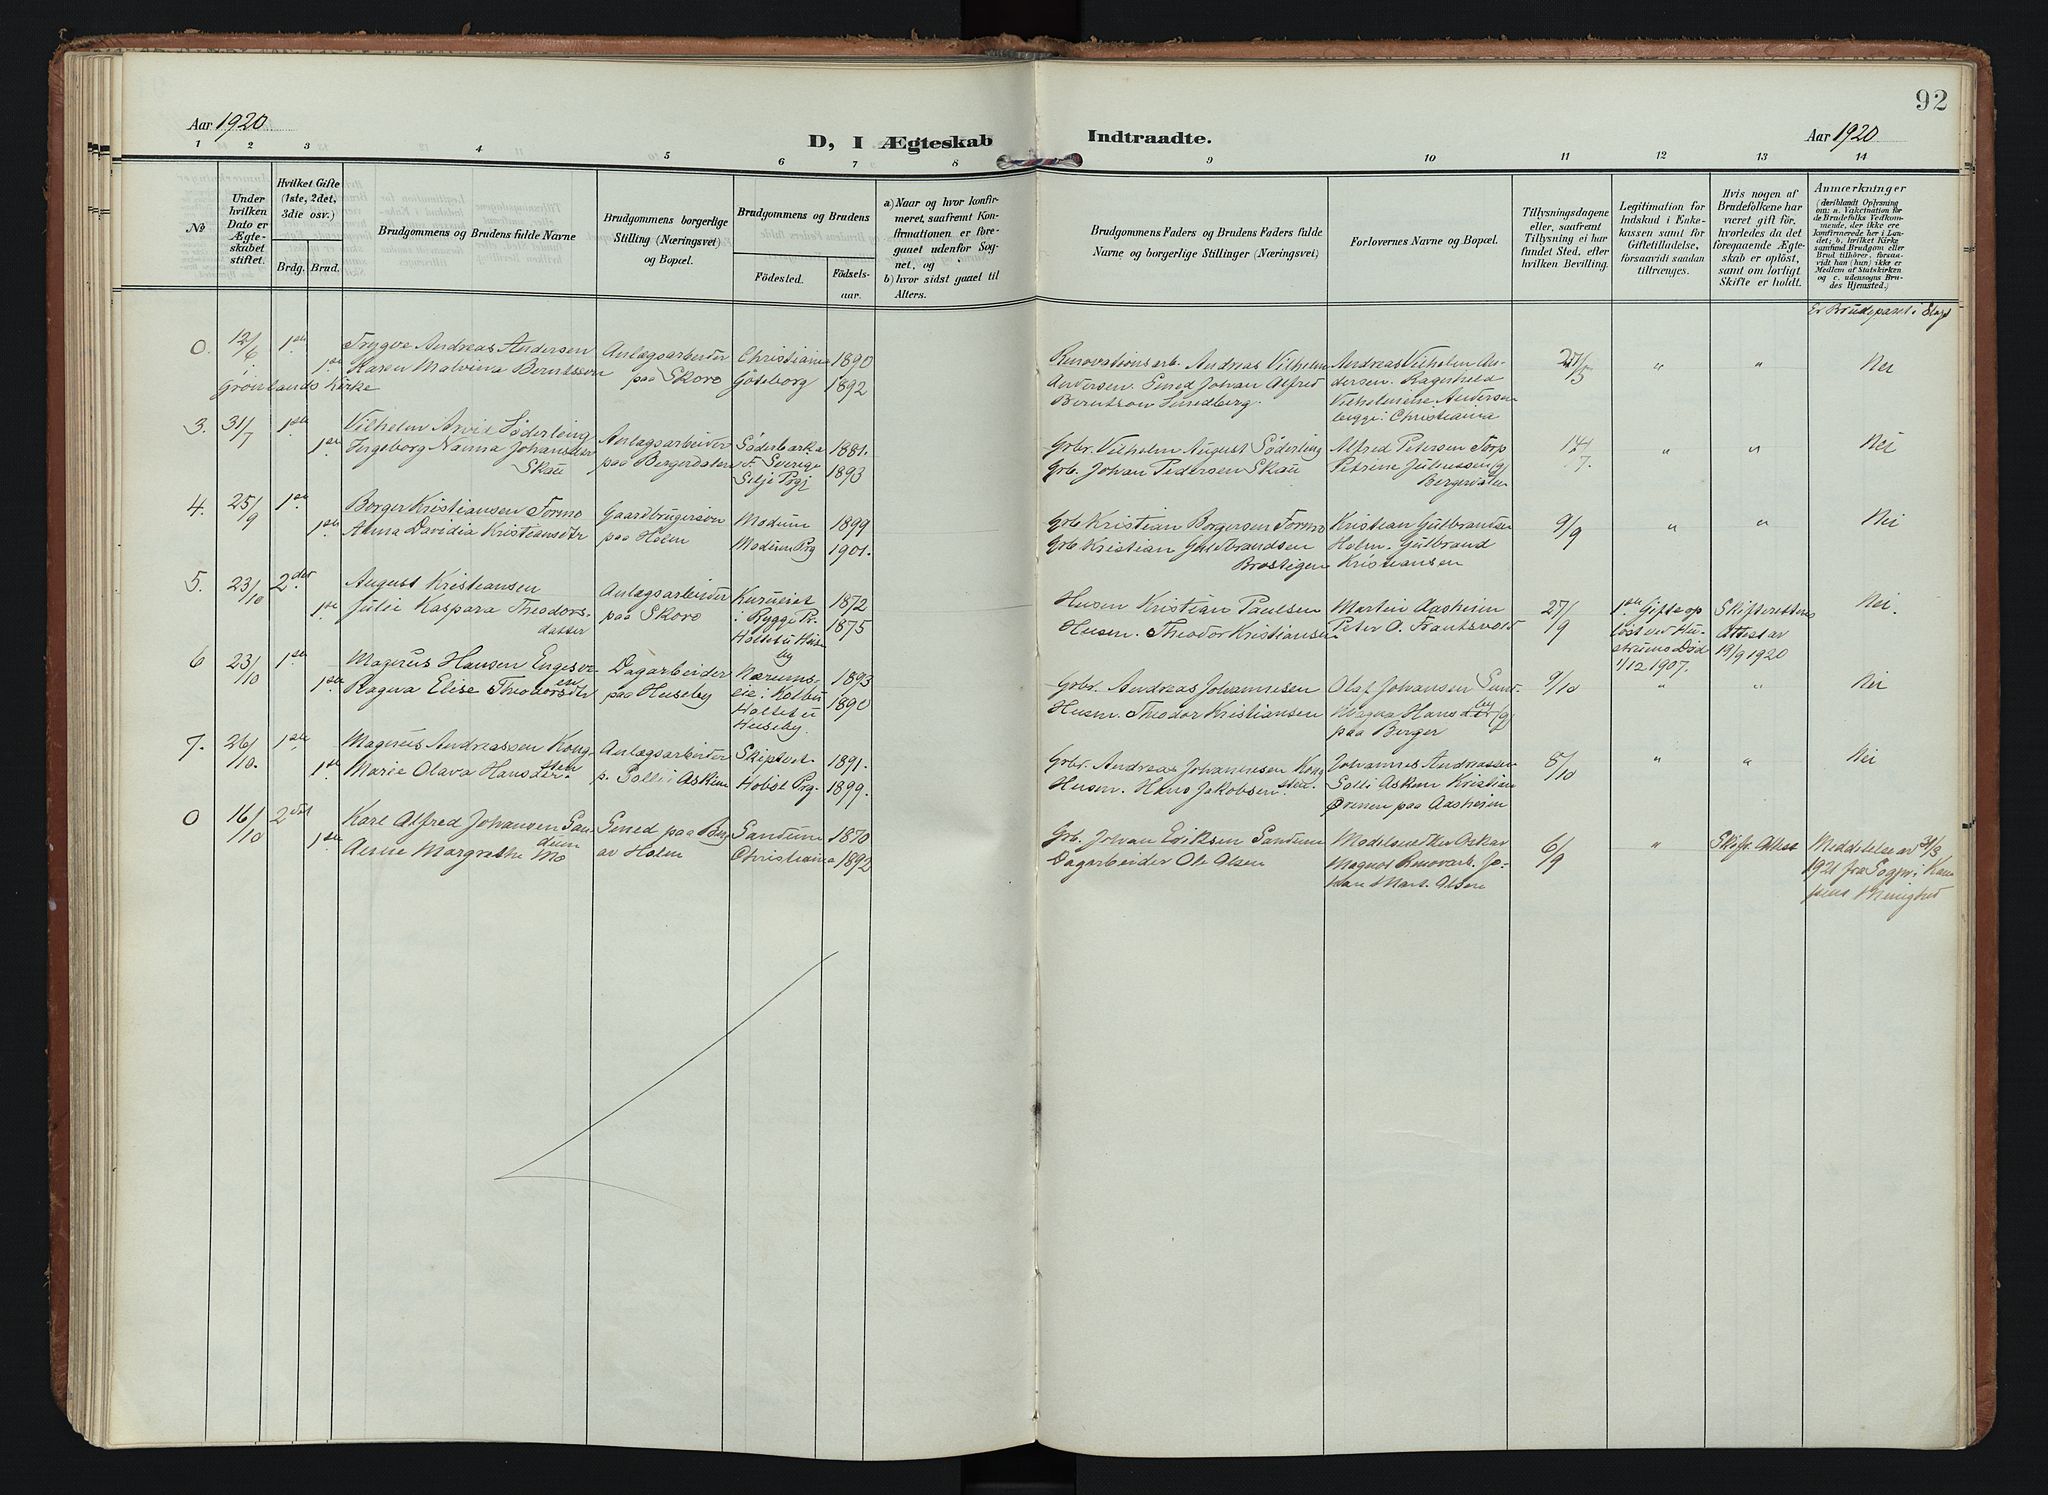 92
Aar 1920
D, I Ægteskab
Indtraadte.
Aar 1920
1 2 3 4 5 6 7 8 9 10 11 12 13 14
No
Under hvilken Dato er Ægteskabet stiftet.
Hvilket Gifte (1ste, 2det, 3die osv.)
Brdg. Brud.
Brudgommens og Brudens fulde Navne
Brudgommens borgerlige Stilling (Næringsvei) og Bopæl.
Brudgommens og Brudens
Fødested.
Fødselsaar.
a) Naar og hvor konfirmeret, saafremt Konfirmationen er foregaaet udenfor Sognet, og
b) hvor sidst gaaet til Alters.
Brudgommens Faders og Brudens Faders fulde Navne og borgerlige Stillinger (Næringsvei)
Forlovernes Navne og Bopæl.
Tillysningsdagene eller, saafremt Tillysning ei har fundet Sted, efter hvilken Bevilling.
Legitimation for Indskud i Enkekassen samt for Giftetilladelse, forsaavidt saadan tiltrænges.
Hvis nogen af Brudefolkene har været gift før, hvorledes da det foregaaende Ægteskab er opløst, samt om lovligt Skifte er holdt.
Anmærkninger (deriblandt Oplysning om: a. Vakcination for de Brudefolks Vedkommende, der ikke ere konfirmerede her i Landet; b. hvilket Kirkesamfund Brudgom eller Brud tilhører, forsaavidt han (hun) ikke er Medlem af Statskirken og c. udensogns Brudes Hjemsted.)
Er Brudeparret i Slægt
0. 12/6 1ste Trygve Andreas Andersen Anlægsarbeider Christiania 1890
1ste Karen Malvina Berntsson paa Skoro Göteborg 1892
Grønlands Kirke
Renovationsarb. Andreas Vilhelm Andreas Vilhelm An- 27/5 " " Nei
Andersen. Smed Johan Alfred dersen. Ragnhild
Berntson Smedberg. Vilhelmine Andersen
begge i Christiania
3. 31/7 1ste Vilhelm Arvid Söderling Anlægsarbeider Söderbarka 1881.
1ste Ingeborg Naima Johansdtr paa Bergerdalen F. Sverige 1893
Skau Silje Prgj
Grbr. Vilhelm August Söderling Alfred Petersen Torp 14/7. " " Nei
Grb. Johan Pedersen Skau Petrine Juliussen
Bergerdalen
4. 25/9 1ste Borger Kristiansen Formo Gaardbrugersøn Modum 1899
1ste Anna Davidia Kristiansdtr paa Holm Modum Prg 1901.
Grb Kristian Borgersen Formo Kristian Gulbrandsen 9/9 " " Nei
Grb Kristian Gulbrandsen Holm. Gulbrand
Brostigen Kristiansen
5. 23/10 2det August Kristiansen Anlægsarbeider 1872
1ste Julie Kaspara Theodors- paa Skoro i Rygge Pr. 1875
datter Holtet u Huse-
by
Husm Kristian Paulsen Martin Aasheim 27/9 1ste Gifte op Skifterettens Nei.
Husm. Theodor Kristiansen Peter O. Frantsvold løst ved Hu- Attest av
struens Død 19/9 1920
1/12 1907.
6 23/10 1ste Magnus Hansen Engesve- Dagarbeider 1893
en
1ste Ragna Elise Theodorsdtr paa Huseby eie i Kolbu 1890
Holtet u
Huseby.
Grbr. Andreas Johannesen Olaf Johansen Sund- 9/10 " " Nei
by
Husm. Theodor Kristiansen Magna Hansdtr
paa Berger
7. 26/10. 1ste Magnus Andreassen Kong- Anlægsarbeider Skiptvet 1891.
sten
1ste Marie Olava Hansdtr p. Solli i Askim Hobøl Prg. 1899.
Grbr. Andreas Johannesen Kong Johannes Andreassen 8/10 " " Nei
sten.
Husm. Hans Jakobsen Solli Askim Kristian
Ørenen paa Aasheim
0 16/10 2det Karl Alfred Johansen San- Smed paa Berg Sandum 1870
dum
1ste Anne Margrethe Mo av Holm Christiania 1892
Grb. Johan Eriksen Sandum Modelsnekker Oskar 6/9 " Skifr. Attest Meddelelse av 31/3
Dagarbeider Ole Olsen Magnor Renovarb. Jo- 1921 fra Sogpr i Kam
han Mart. Olsen pens Menighed